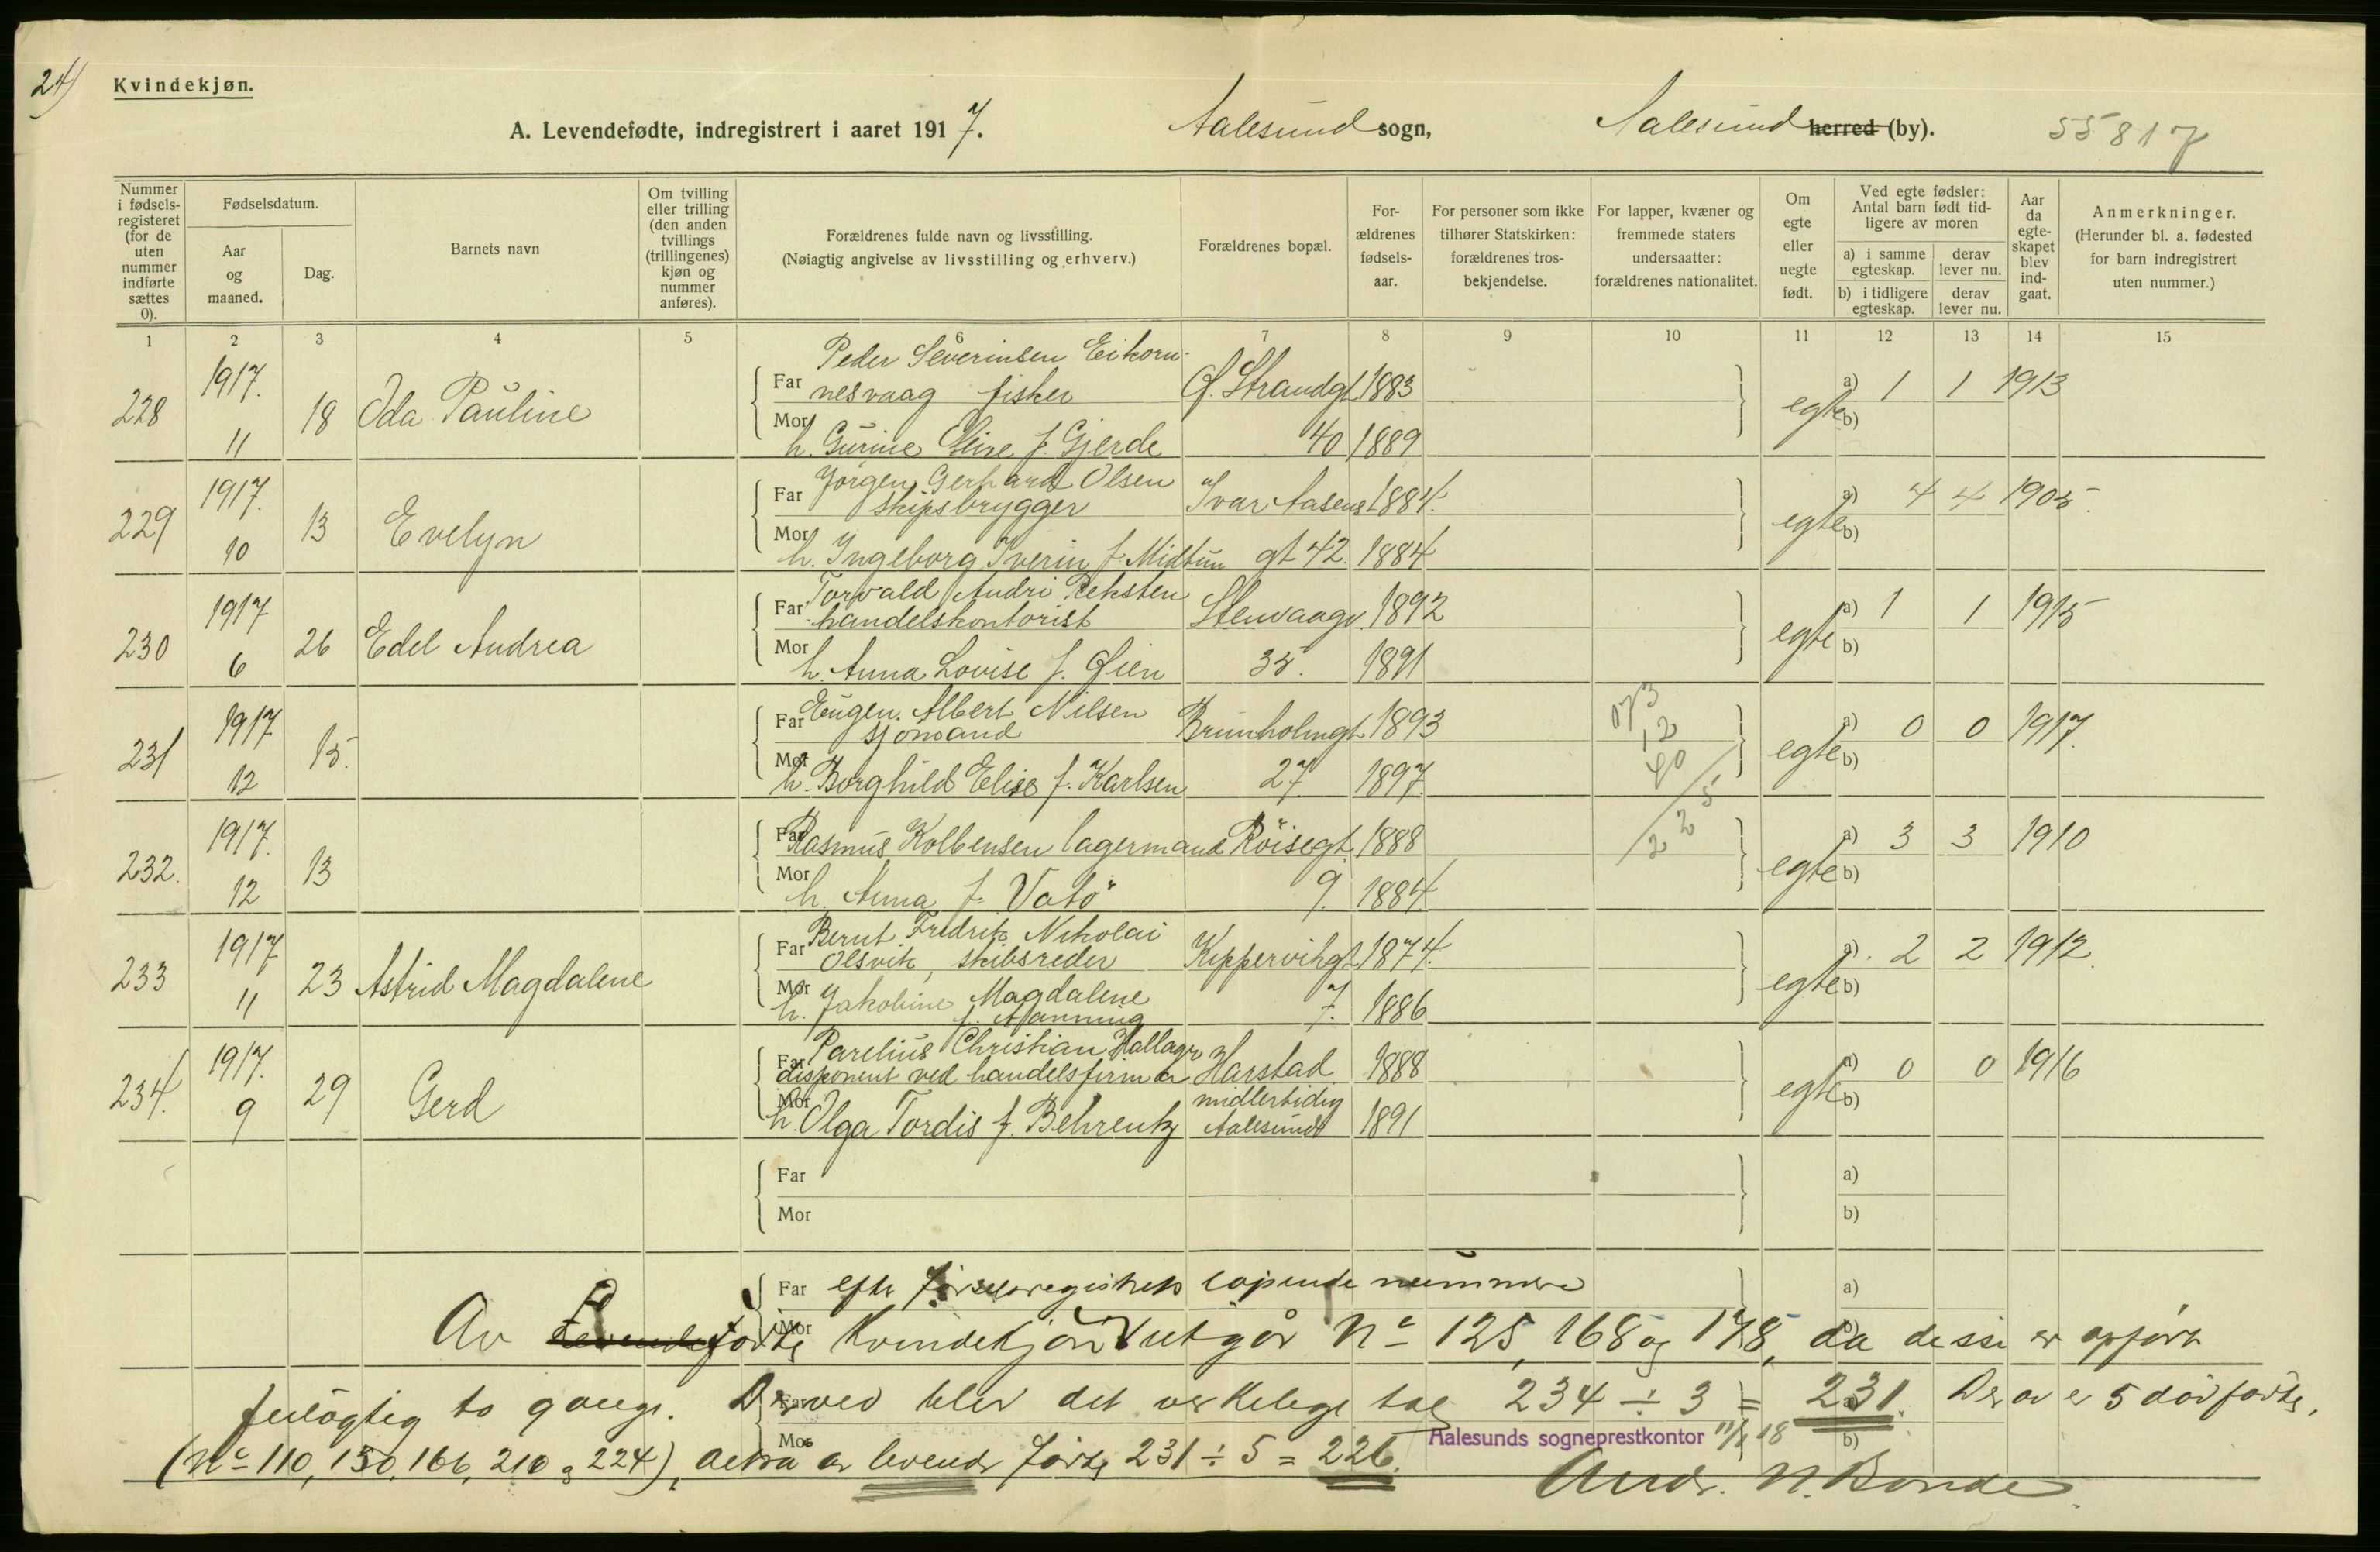 24)
Kvindekjøn.
A. Levendefødte, indregistrert i aaret 1917. Aalesund sogn, Aalesund herred (by). 55817
Nummer i fødselsregisteret (for de uten nummer indførte sættes 0).
Fødselsdatum.
Aar og maaned.
Dag.
Barnets navn
Om tvilling eller trilling (den anden tvillings (trillingenes) kjøn og nummer anføres).
Forældrenes fulde navn og livsstilling.
(Nøiagtig angivelse av livsstilling og erhverv.)
Forældrenes bopæl.
Forældrenes fødselsaar.
For personer som ikke tilhører Statskirken: forældrenes trosbekjendelse.
For lapper, kvæner og fremmede staters undersaatter: forældrenes nationalitet.
Om egte eller uegte født.
Ved egte fødsler: Antal barn født tidligere av moren
a) i samme egteskap.
derav lever nu.
b) i tidligere egteskap.
derav lever nu.
Aar da egteskapet blev indgaat.
Anmerkninger.
(Herunder bl. a. fødested for barn indregistrert uten nummer.)
1 2 3 4 5 6 7 8 9 10 11 12 13 14 15
Peder Severinsen Eikorn-
228 1917. 11 18 Ida Pauline Far nesvaag fisker Ø. Strandgt. 1883 egte a) 1 1 1913
Mor h. Gurine Eline f. Gjerde 40 1889 b)
229 1917. 10 13 Evelyn Far Jørgen Gerhard Olsen
skipsbrygger Ivar Aasens 1884. egte a) 4 4 1905.
Mor h. Ingeborg Iverin f. Midtun gt 42. 1884 b)
230 1917 6 26 Edel Andrea Far Torvald Andri Reksten
handelskontorist Stenvaagv. 1892 egte a) 1 1 1915
Mor h. Anna Lovise f. Øien 35. 1891 b)
231 1917 12 15. Far Eugen Albert Nilsen
sjømand Brunholmgt 1893 egte a) 0 0 1917.
Mor h. Borghild Elise f. Karlsen 27 1897 b)
232. 1917. 12 13 Far Rasmus Kolbensen lagermand Röisegt. 1888 egte a) 3 3 1910
Mor h. Anna f. Vatö 9. 1884. b)
233 1917 11 23 Astrid Magdalene Far Bernt Fredrik Nikolai
Olsvik, skibsreder Kippervikgt. 1874. egte a) 2 2 1912.
Mor h. Jakobine Magdalene 7. 1886 b)
234. 1917. 9 29 Gerd Far Parelius Christian Hallager
disponent ved handelsfirma Harstad 1888 egte a) 0 0 1916
midlertidig
Mor h. Olga Tordis f. Behrentz Aalesund 1891 b)
Far a)
Mor b)
Far efter fødselsregistrets løpende nummere a)
Av fødte Mor Kvindekjøn utgår No 125, 168 og 178, da disse er opført
feilagtig to gange. Far Derved blev det virkelige tal 234 ÷ 3 = 231. Derav er 5 dødfødte,
Aalesunds sogneprestkontor 11/1 18 b)
(No 110, 150, 166, 210 og 224), Mor av levende fødte 231 ÷ 5 = 226.
Andr. N. Bonde